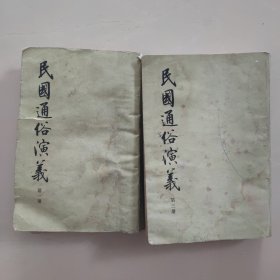 民國通俗演義
第一册
民國通俗演義
第二册